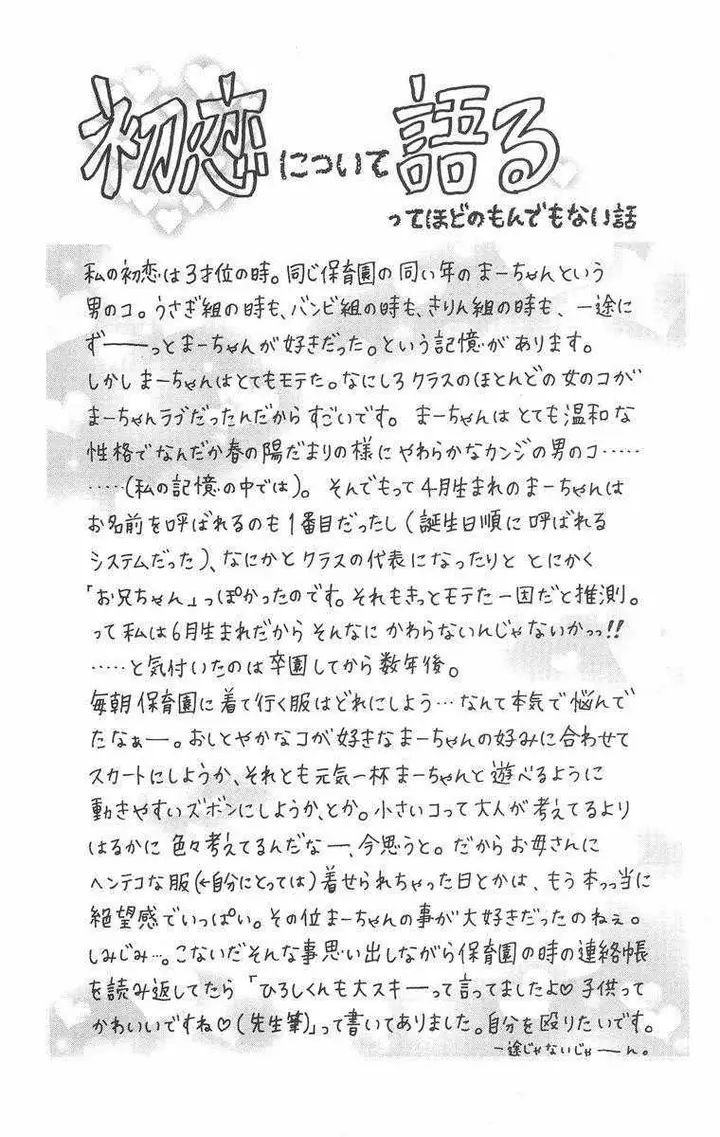 初恋について語る
ってほどのもんでもない話
私の初恋は3才位の時。同じ保育園の同い年のまーちゃんという
男のコ。うさぎ組の時も、バンビ組の時も、きりん組の時も、一途に
ずーーっとまーちゃんが好きだった。という記憶があります。
しかしまーちゃんはとてもモテた。なにしろクラスのほとんどの女のコが
まーちゃんラブだったんだからすごいです。まーちゃんはとても温和な
性格でなんだか春の陽だまりの様にやわらかなカンジの男のコ……
……(私の記憶の中では)。そんでもって4月生まれのまーちゃんは
お名前を呼ばれるのも1番目だったし(誕生日順に呼ばれる
システムだった)、なにかとクラスの代表になったりととにかく
「お兄ちゃん」っぽかったのです。それもきっとモテた一因だと推測。
って私は6月生まれだからそんなにかわらないんじゃないかっっ!!
……と気付いたのは卒園してから数年後。
毎朝保育園に着て行く服はどれにしよう…なんて本気で悩んで
たなぁー。おしとやかなコが好きなまーちゃんの好みに合わせて
スカートにしようか、それとも元気一杯まーちゃんと遊べるように
動きやすいズボンにしようか、とか。小さいコって大人が考えてるより
はるかに色々考えてるんだなー、今思うと。だからお母さんに
ヘンテコな服(←自分にとっては)着せられちゃった日とかは、もう本っっ当に
絶望感でいっぱい。その位まーちゃんの事が大好きだったのねぇ。
しみじみ…。こないだそんな事思い出しながら保育園の時の連絡帳
を読み返してたら「ひろしくんも大スキーって言ってましたよ♡子供って
かわいいですね♡(先生筆)」って書いてありました。自分を殴りたいです。
一途じゃないじゃーん。